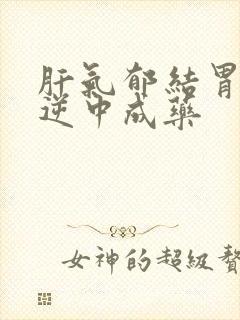 肝氣郁結胃
逆中成藥
女神的超級贅